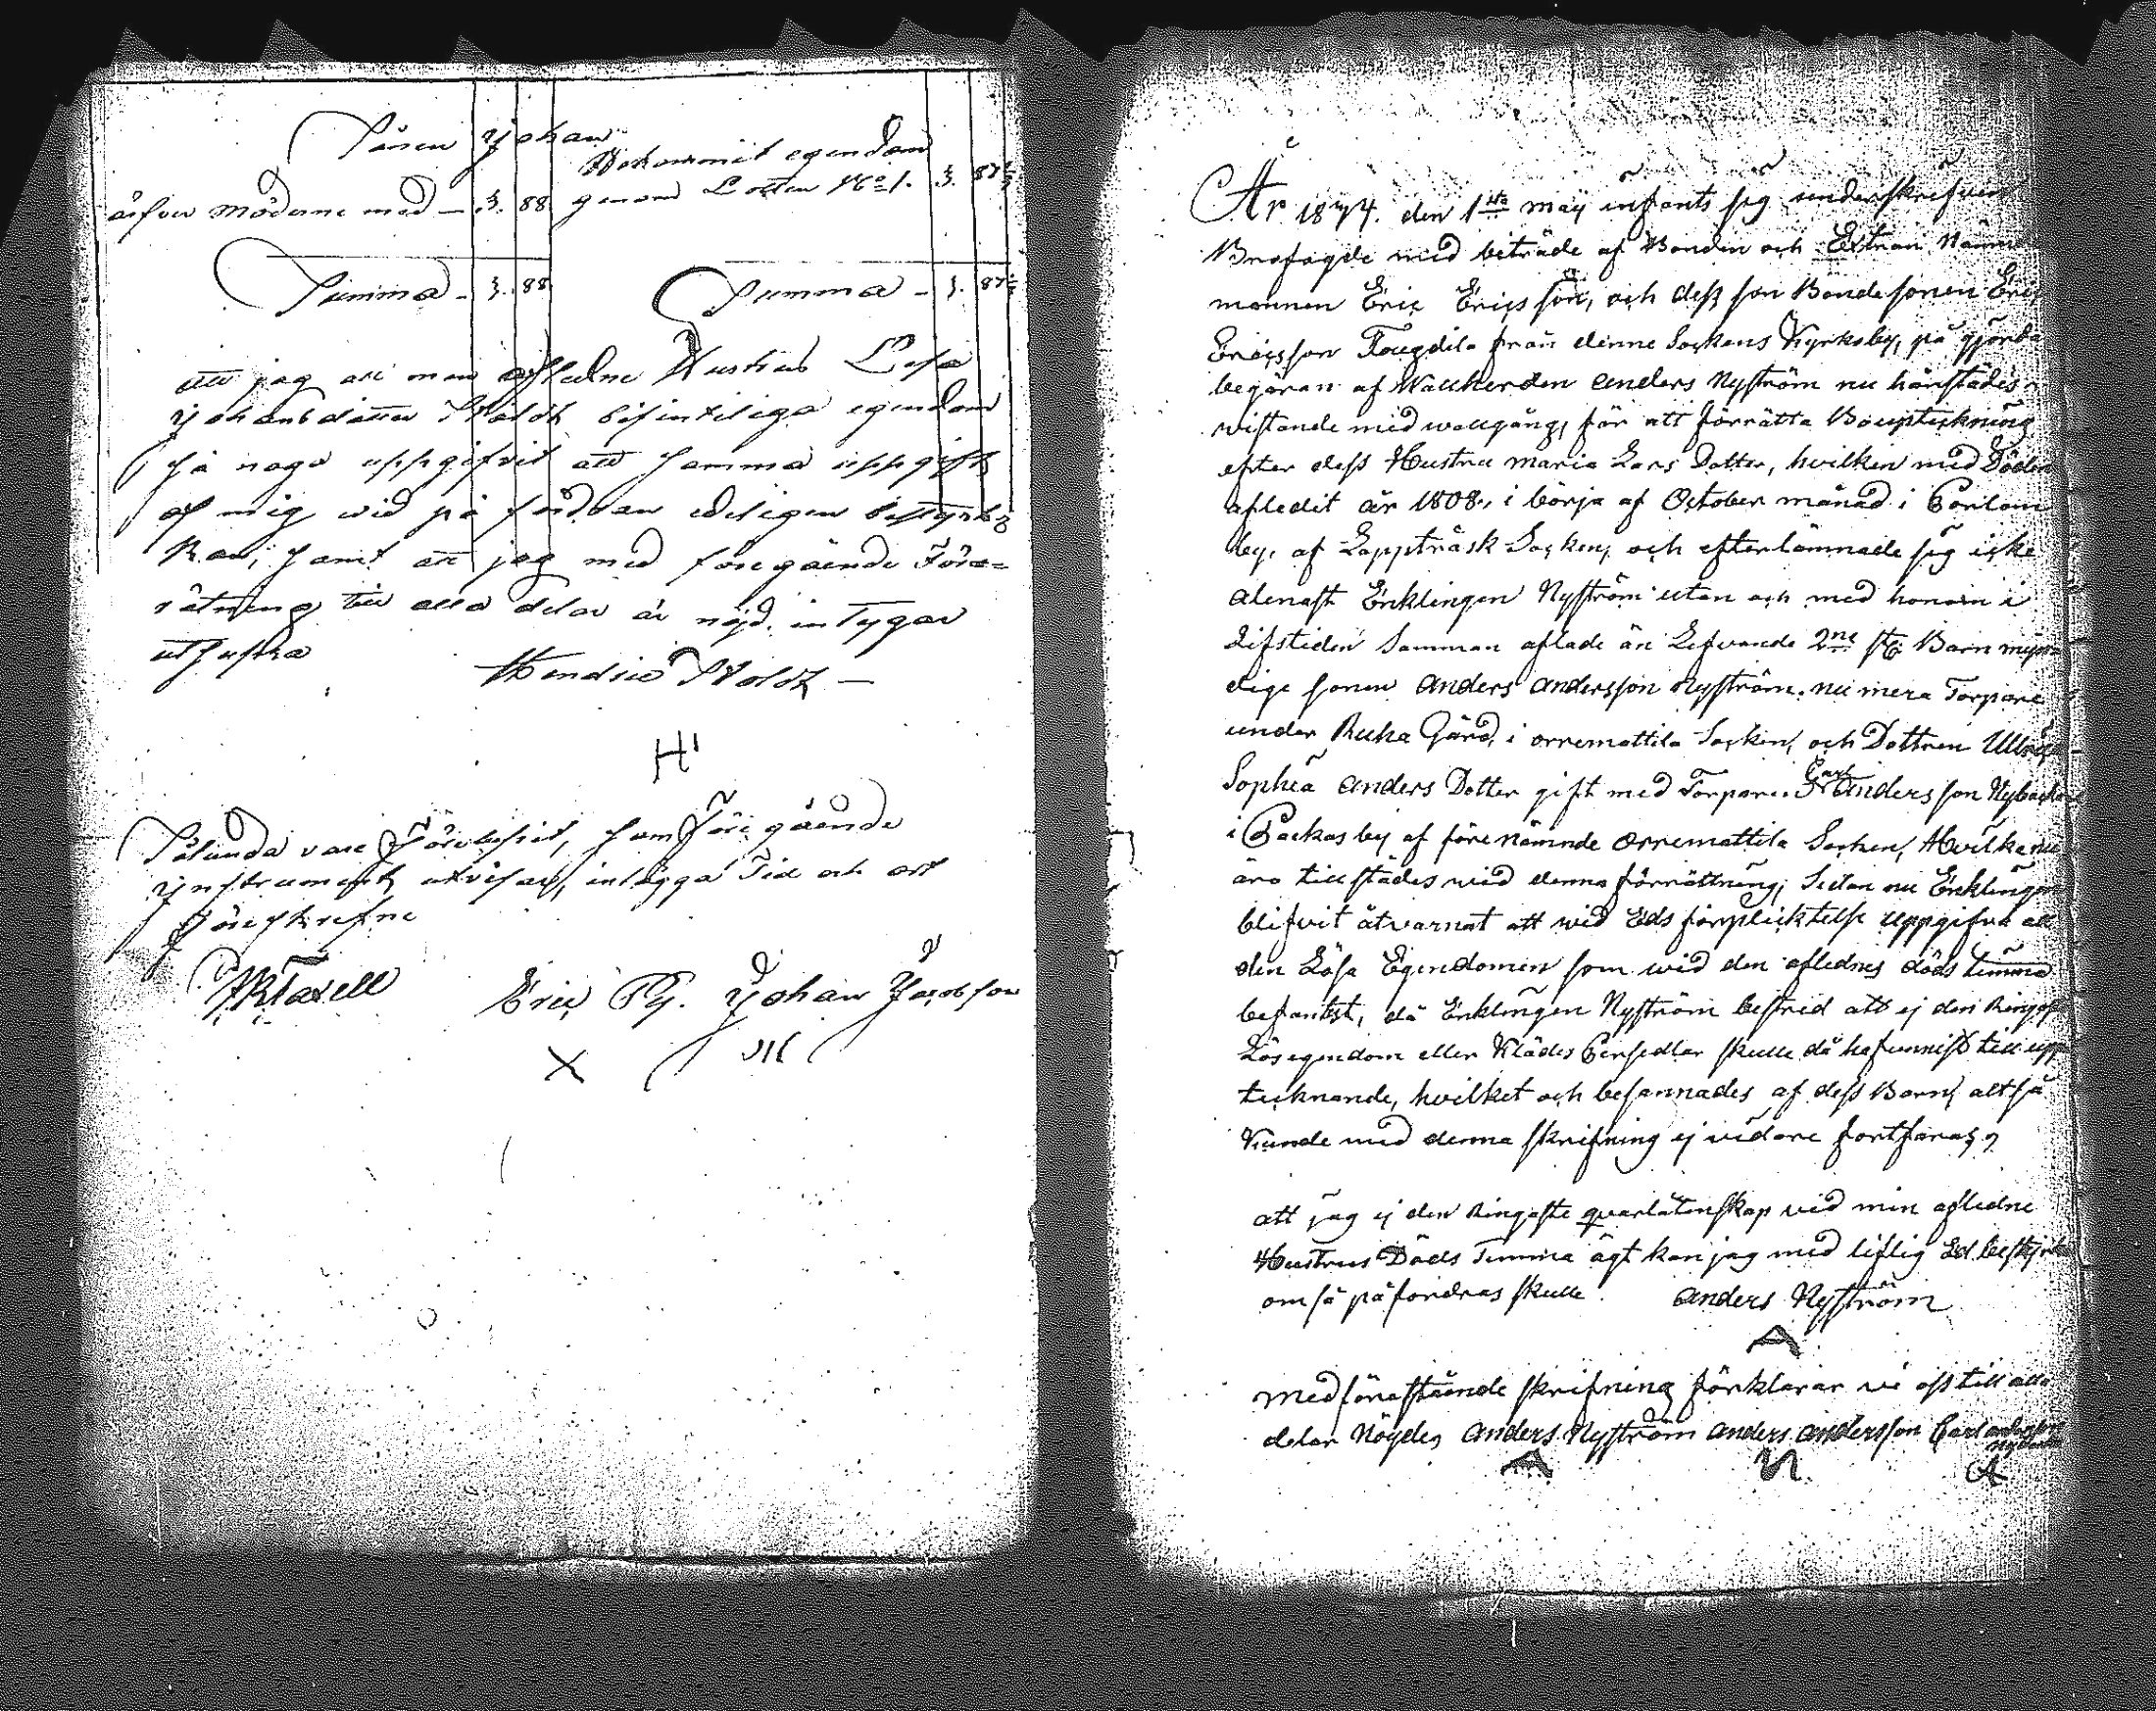 Sonen Johan
Bekommit egendom
ärfver möderne med — 3. 88 genom Lotten No 1. 3. 87½
Summa - 3. 88 Summa - 3. 87½
att jag all min afledne Hustrus Lisa
Johansdotter befinteliga egendom
så noga uppgifvit att samma uppgift
af mig vid på fordran edeligen bestyrkas
kan, samt att jag med föregående Före=
rätning till alla delar är nöjd, intygar
Hendric
H
Sålunda vara Förelupit, som Föregående
Instrument utvisar, intygga Tid och ort
Föreskrefne
Eric Johan Jacobsson
X
År 1814. den 1sta may infants sig underskrefven
Brofogde med biträde af Bonden och Extra Nämnde
mannen Eric Ericsson, och dess son Bondesonen Eric
Ericsson från denne Sockens Kyrkoby, på gjorde
begäran af Anders Nyström nu härstädes
vistande med , för att förrätta Bouptekning
efter dess Hustru Maria Lars Dotter, hvilken med Döden
afledit år 1808, i börja af October månad i Porlom
by, af Lappträsk Socken, och efterlämnade sig icke
alenast Enklingen Nyström utan och med honom i
Lifstiden Samman aflade än Lefvande 2ne st. Barn myn
dige sonen Anders Andersson Nyström. nu mera Torpare
under Ruha Gård, i orremattila Socken, och Dottren Ulrica
Sophia Anders Dotter gift med Torparen Carl Andersson Nybacka
i Packas by af förenämnde Orremattila Socken, Hvilka nu
äro tillstädes vid denna förrättning; Sedan nu Enklingen
blifvit åtvarnat att vid Eds förpliktelse uppgifva all
den Lösa Egendomen som vid den aflednes döds timma
befantst, då Enklingen Nyström bestrid att ej den Ringaste
Lösegendom eller Klädes Persedlar skulle då hafvunnist till upp
tecknande, hvilket och besannades af dess Barn, altså
Kunde med denna skrifning ej vidare fortfaras,
att jag ej den Ringaste qvarlåtenskap vid min afledne
Hustrus Döds Timma ägt kan jag med liflig Ed bestyrka
om så påfordras skulle. Anders Nyström
Med förestående skrifning förklarar vi oss till alla
delar Nöydes Anders Nyström Anders Andersson Carl Andersson